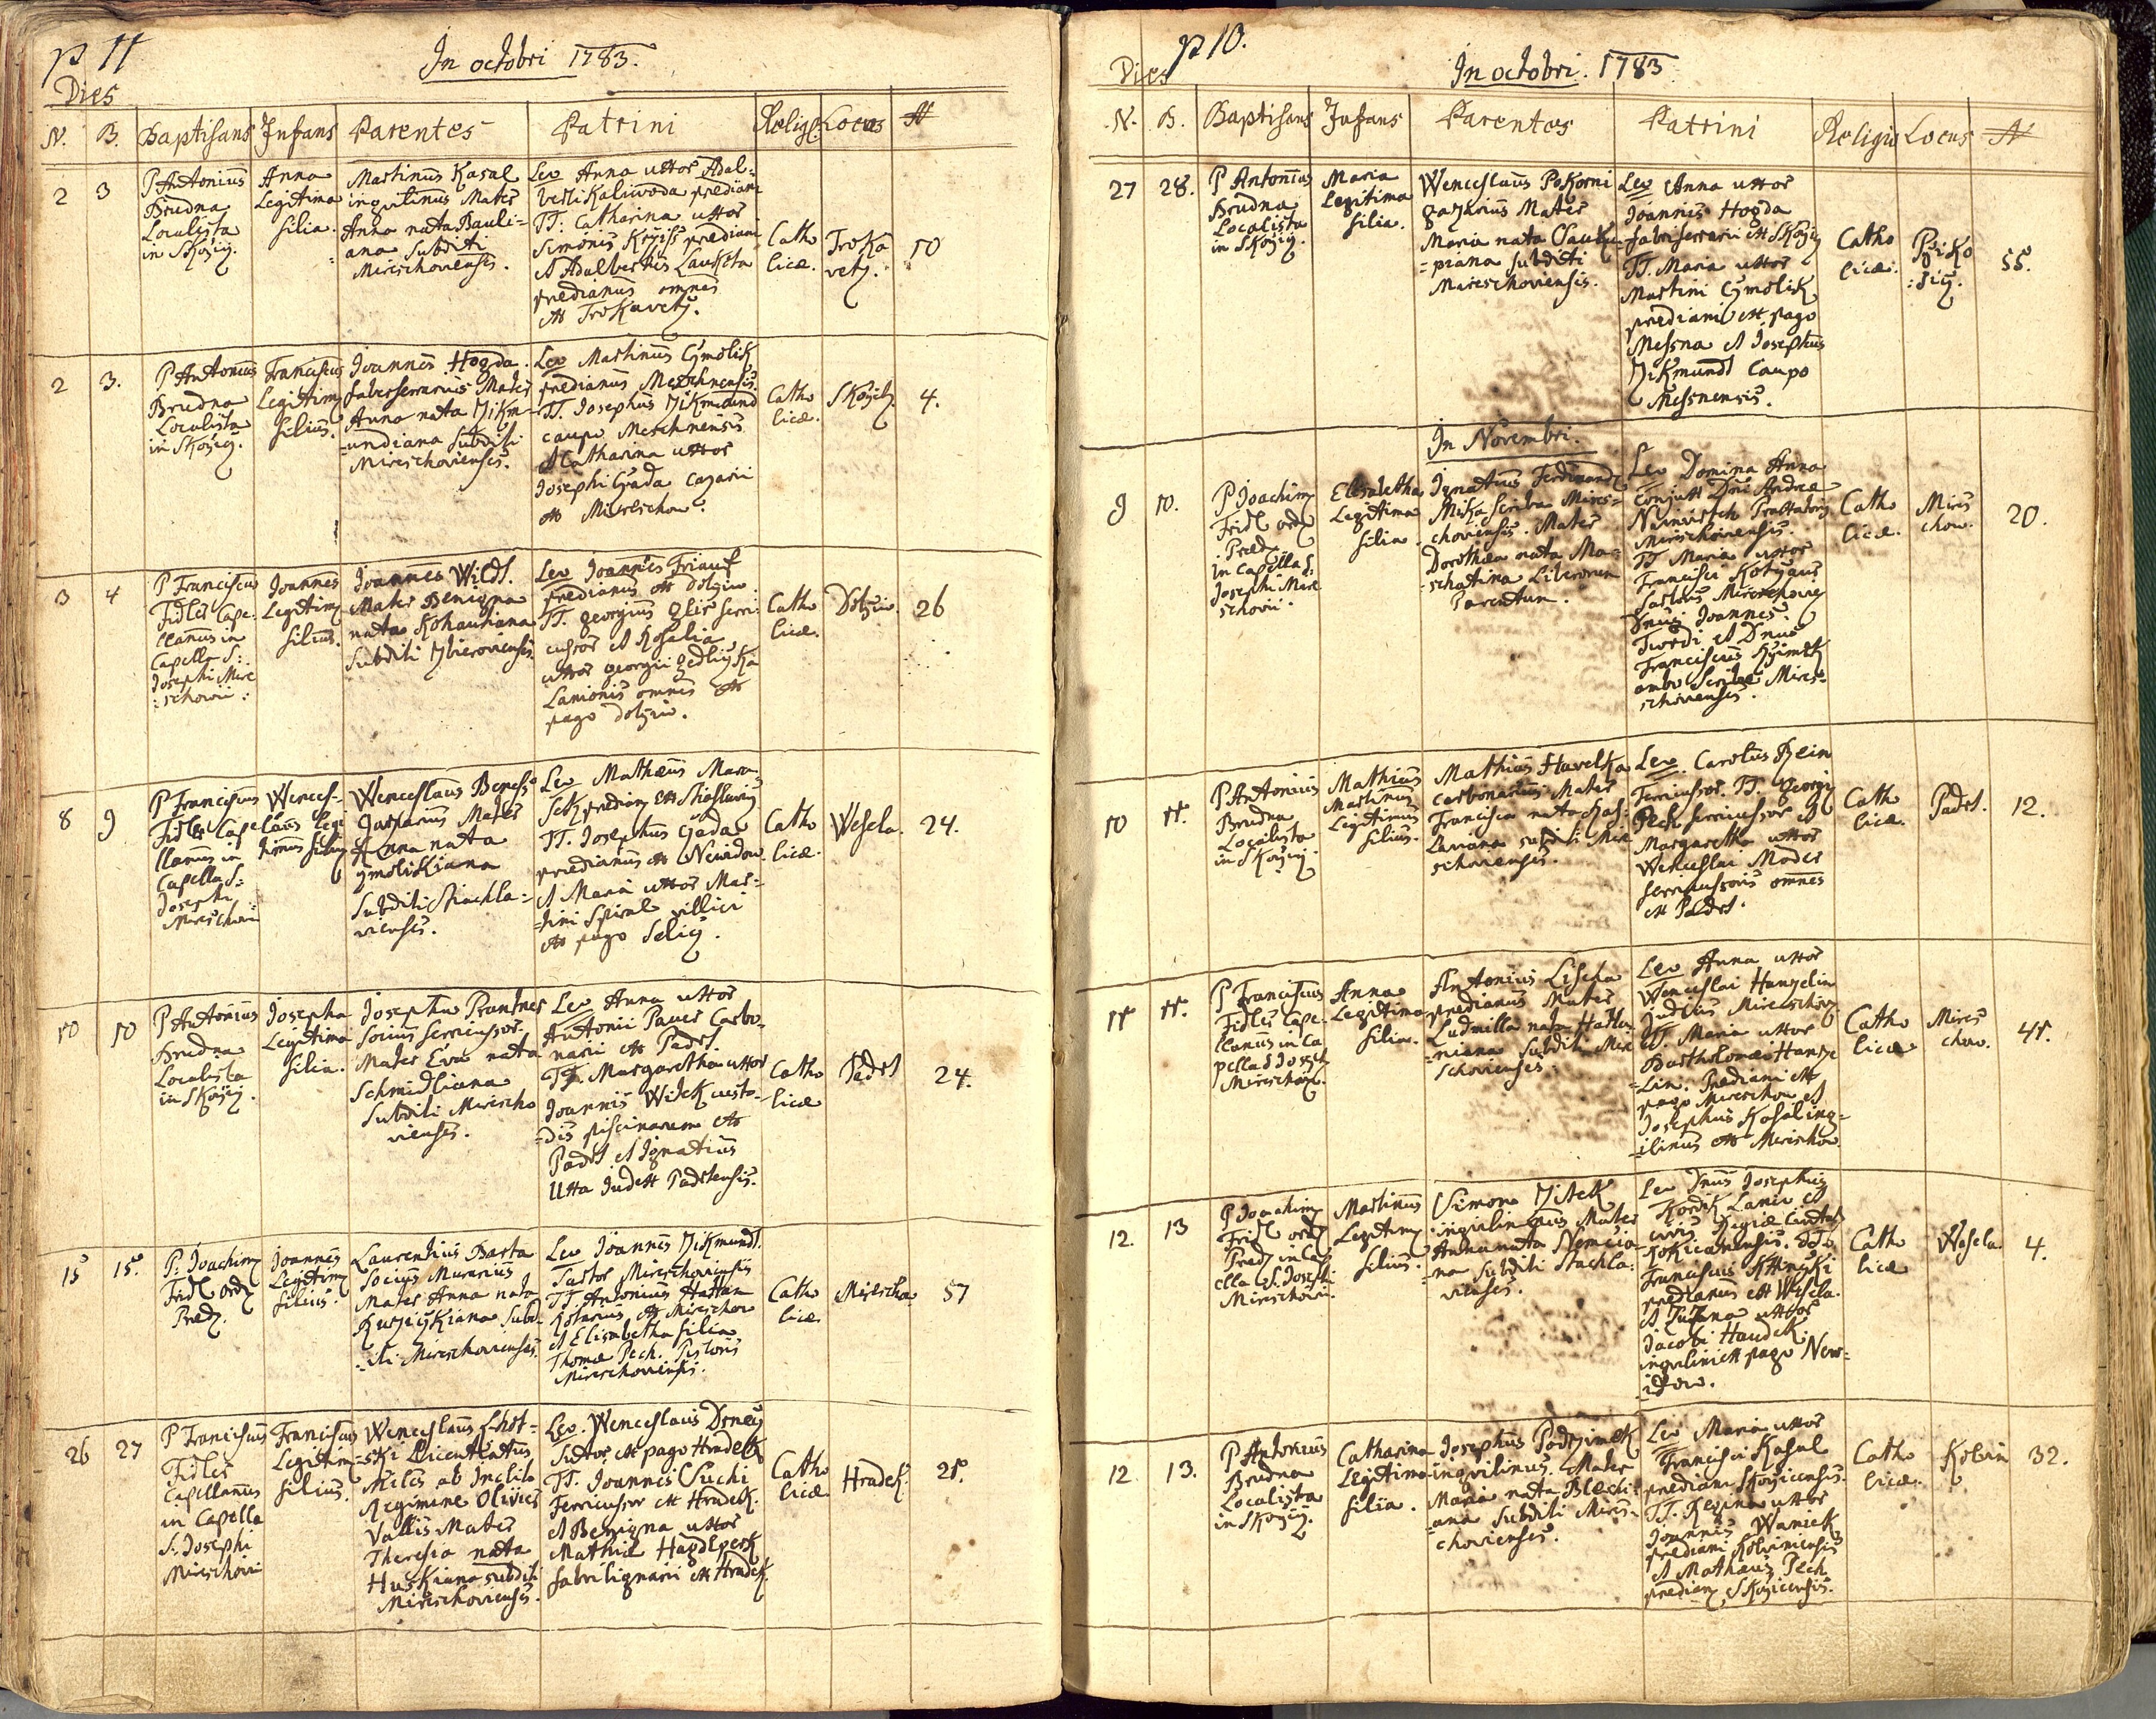 p 11
In octobri 1783.
Dies
N. B. Baptisans Infans Parentes Patrini Religio Locus N
2 3
P Antonius
Brudna
Localista
in Skořiz.
Anna
Legitima
filia.
Martinus Kasal
inquilinus Mater
Anna nata Pauli=
=ana subditi
Mireschovienses.
Lev Anna uxor Adal=
berti Kaliwoda prediani
TT: Catharina uxor
Simonis prediani
et Adalbertus Lauketa
predianus omnes
ex Trokavetz.
Catho
licæ.
Troka
vetz.
10
2 3.
P Antonius
Brudna
Localista
in Skořiz.
Franciscus
Legitim9
filius.
Joannes Hogda
faberferrarius Mater
Anna nata Zikm=
=undiana subditi
Mireschovienses.
Lev Martinus Czmolik
predianus Meschnensis
TT. Josephus Zikmund
caupo Meschnensis
et Catharina uxor
Josephi Gada cazarii
ex Mireschow.
Catho
licæ.
Skořitz.
4.
3 4
P Franciscus
Fidler Cape:
llanus in
Capella S:
Josephi Mire
:schovii:
Joannes
Legitim9
filius.
Joannes Wildt.
Mater Benigna
nata Kohautiana
subditi Zbirovienses
Lev Joannes Friauf
predianus ex Dolziw
TT. Georgius Glis ferri=
cusor et Rosalia
uxor Georgii Gedlizka
Lanionis omnes ex
pago Dolziw.
Catho
licæ.
Dolziw.
26
8 9
P Franciscus
Fidler Cape
llanus in
Capella S:
Josephi
Mireschovii
Wences=
laus legi
timus filius
Wenceslaus Beness
gazarius Mater
Anna nata
zmolikiana
Subditi Stiachla=
vienses.
Lev Mathæus Mara=
sek predian9 ex Stiahlawiz
TT. Josephus Gada
predianus ex Newidow
et Maria uxor Mar=
=tini Spiral villici
ex pago Seliz.
Catho
licæ.
Wesela.
24.
10 10
P Antonius
Brudna
Localista
in Skořiz.
Josepha
Legitima
filia.
Josephus Prantner
Socius ferricusor.
Mater Eva nata
Schmidliana
Subditi Mirescho
vienses.
Lev Anna uxor
Antonii Paver Carbo=
narii ex Padrt.
TT. Margaretha uxor
Joannis Witek custo=
=dis piscinarum ex
Padrt et Ignatius
Utta Judex Padrtensis.
Catho
licæ
Padrt
24.
15 15.
P: Joachim9
Fridl ord9
Præd9.
Joannes
Legitim9
filius.
Laurentius Barta
Socius Murarius
Mater Anna nata
Ruzizkiana Subd=
=iti Mireschovienses.
Lev Joannes Zikmundt.
Sartor Mireschoviensis
TT Antonius Hattan
Rotarius ex Mireschow
et Elisabetha filia
Thomæ Pech. Pistoris
Mireschoviensis.
Catho
licæ.
Mirescho.
57
26 27
P Franciscus
Fidler
Capellanus
in Capella
S: Josephi
Mireschovii
Franciscus
Legitim9
filius.
Wenceslaus Lhot=
=ski Licentiatus
Miles ab Inclito
Regimine Olivier
Vallis Mater
Theresia nata
Huskiana subditi
Mireschovienses.
Lev. Wenceslaus
Sutor ex pago Hradek
TT. Joannes Suchi
Ferricusor ex Hradek.
et Benigna uxor
Mathiæ Hagdlperk
fabrilignarii ex Hradek.
Catho
licæ
Hradek.
21.
p 10.
Dies
In octobri. 1783
N. B. Baptisans Infans Parentes Patrini Religio Locus N
27 28.
P Antonius
Brudna
Localista
in Skořiz.
Maria
Legitima
filia.
Wenceslaus Pokorni
gazarius Mater
Maria nata
=piana subditi
Mireschovienses.
Lev Anna uxor
Joannis Hogda
fabriferrarii ex Skořiz
TT. Maria uxor
Martini Czmolik
prediani ex pago
Messna et Josephus
Zikmundt Caupo
Messnensis.
Catho
licæ.
Přiko
:siz.
55.
In Novembri.
9 10.
P Joachim9
Fridl ord9
Præd9
in Capella S:
Josephi Mire
schovii.
Elisabetha
Legitima
filia.
Ignatius Ferdinand9
Mika Scriba Mires=
choviensis. Mater
Dorothea nata Ma=
=schatina Liberorum
Parentum.
Lev Domina Anna
conjux Dni Andreæ
Tractatoris
Mireschoviensis.
TT Maria uxor
Francisci
Sartoris Mireschovie
Dnus Joannes
Twrdi et Dnus
Franciscus Kzimek
ambo Scribæ Mires=
schovienses.
Catho
licæ.
Mires
chow.
20.
10 11.
P Antonius
Brudna
Localista
in Skořiz.
Mathias
Martinus
Legitimus
filius.
Mathias Havelka
carbonarius Mater
Francisca nata
subditi Mire
schovienses.
Lev. Carolus Bein
Ferricusor. TT. Georgi9
Pech ferricusor et
Margaretha uxor
Wenceslai Moder
ferricusoris omnes
ex Padrt.
Catho
licæ.
Padrt.
12.
11 11.
P Franciscus
Fidler Cape
llanus in Ca
pella S Joseph
Mireschov.
Anna
Legitima
filia.
Antonius Lischa
predianus Mater
Ludmilla nata Hatta=
=niana Subditi Mire
schovienses.
Lev Anna uxor
Wenceslai Hanzelin
Judicis Mireschov
TT. Maria uxor
Bartholomæi Hanze
=lin. Prediani ex
pago Mireschow et
Josephus Kasal inq=
=ilinus ex Mireschow.
Catho
licæ
Mires
chow.
41.
12. 13
P Joachim9
Fridl ord9
Præd9 in Cap
ella S. Josephi
Mireschovii.
Martinus
Legitim9
filius.
Simon Zitek
inquilinus Mater
Anna nata Nemeia=
=na subditi Stachla=
vienses.
Lev Dnus Josephus
Kordik Lanio et
civis Regiæ Civitatis
Rokicanensis. TT.
Franciscus
predianus ex Wesela.
et Anna uxor
Jacobi Haudek.
inquilini ex pago New=
idow.
Catho
licæ
Wesela.
4.
12 13.
P Antonius
Brudna
Localista
in Skořiz.
Catharina
Legitima
filia.
Josephus Podzimek
inquilinus. Mater
Maria nata Blechi=
=ana subditi Mires=
chovienses.
Lev Maria uxor
Francisci Kasal
prediani Skořicensis.
TT. Regina uxor
Joannis Waniek
prediani Kolviniensis
et Mathæus Pech
predian9 Skořicensis.
Catho
licæ.
Kolvin
32.